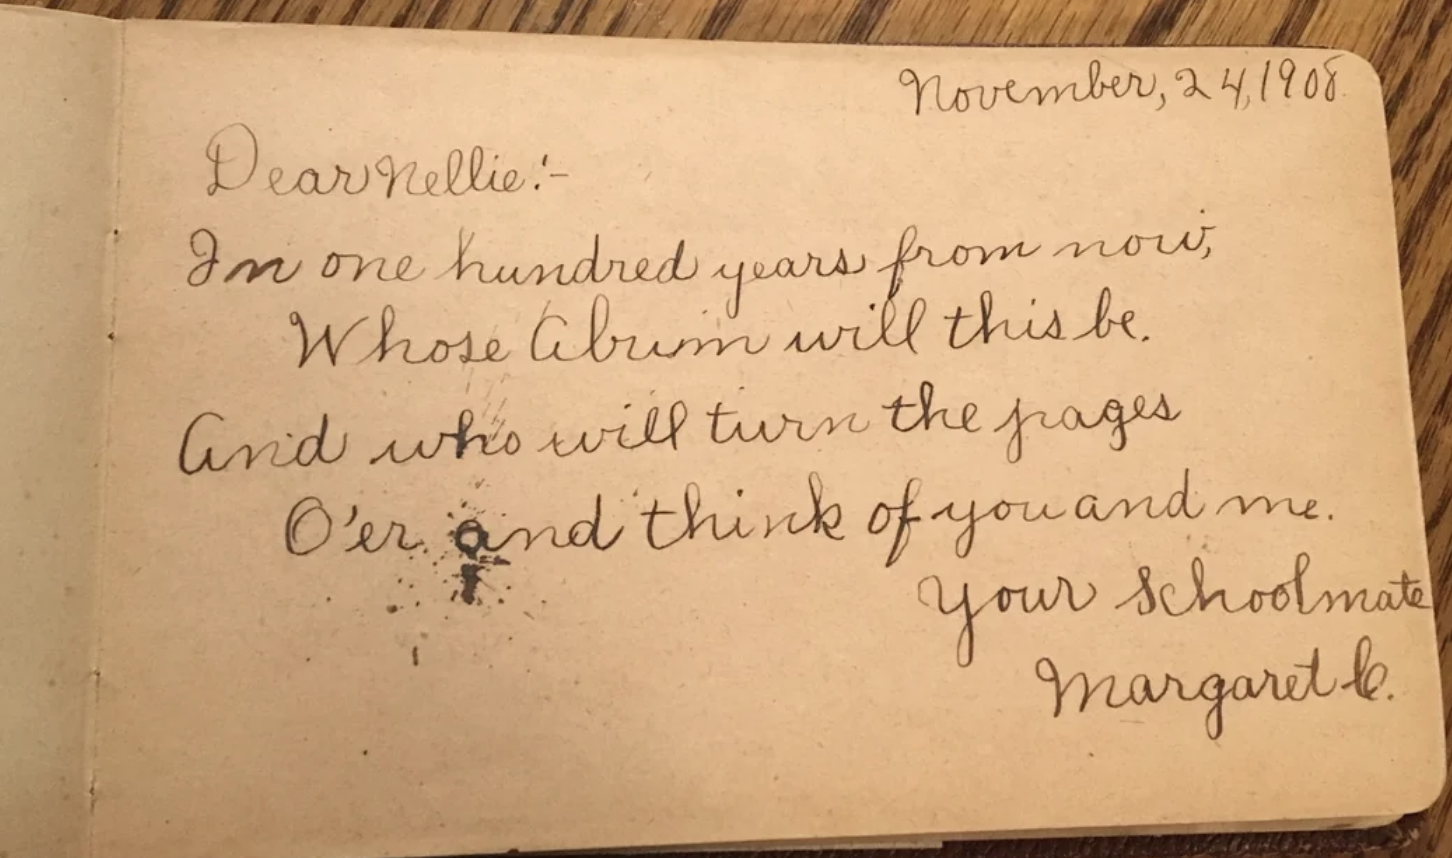 November, 24, 1908
Dear Nellie:-
In one hundred years from now,
Whose Album will this be.
And who will turn the pages
O'er and think of you and me.
Your Schoolmate
Margaret C.